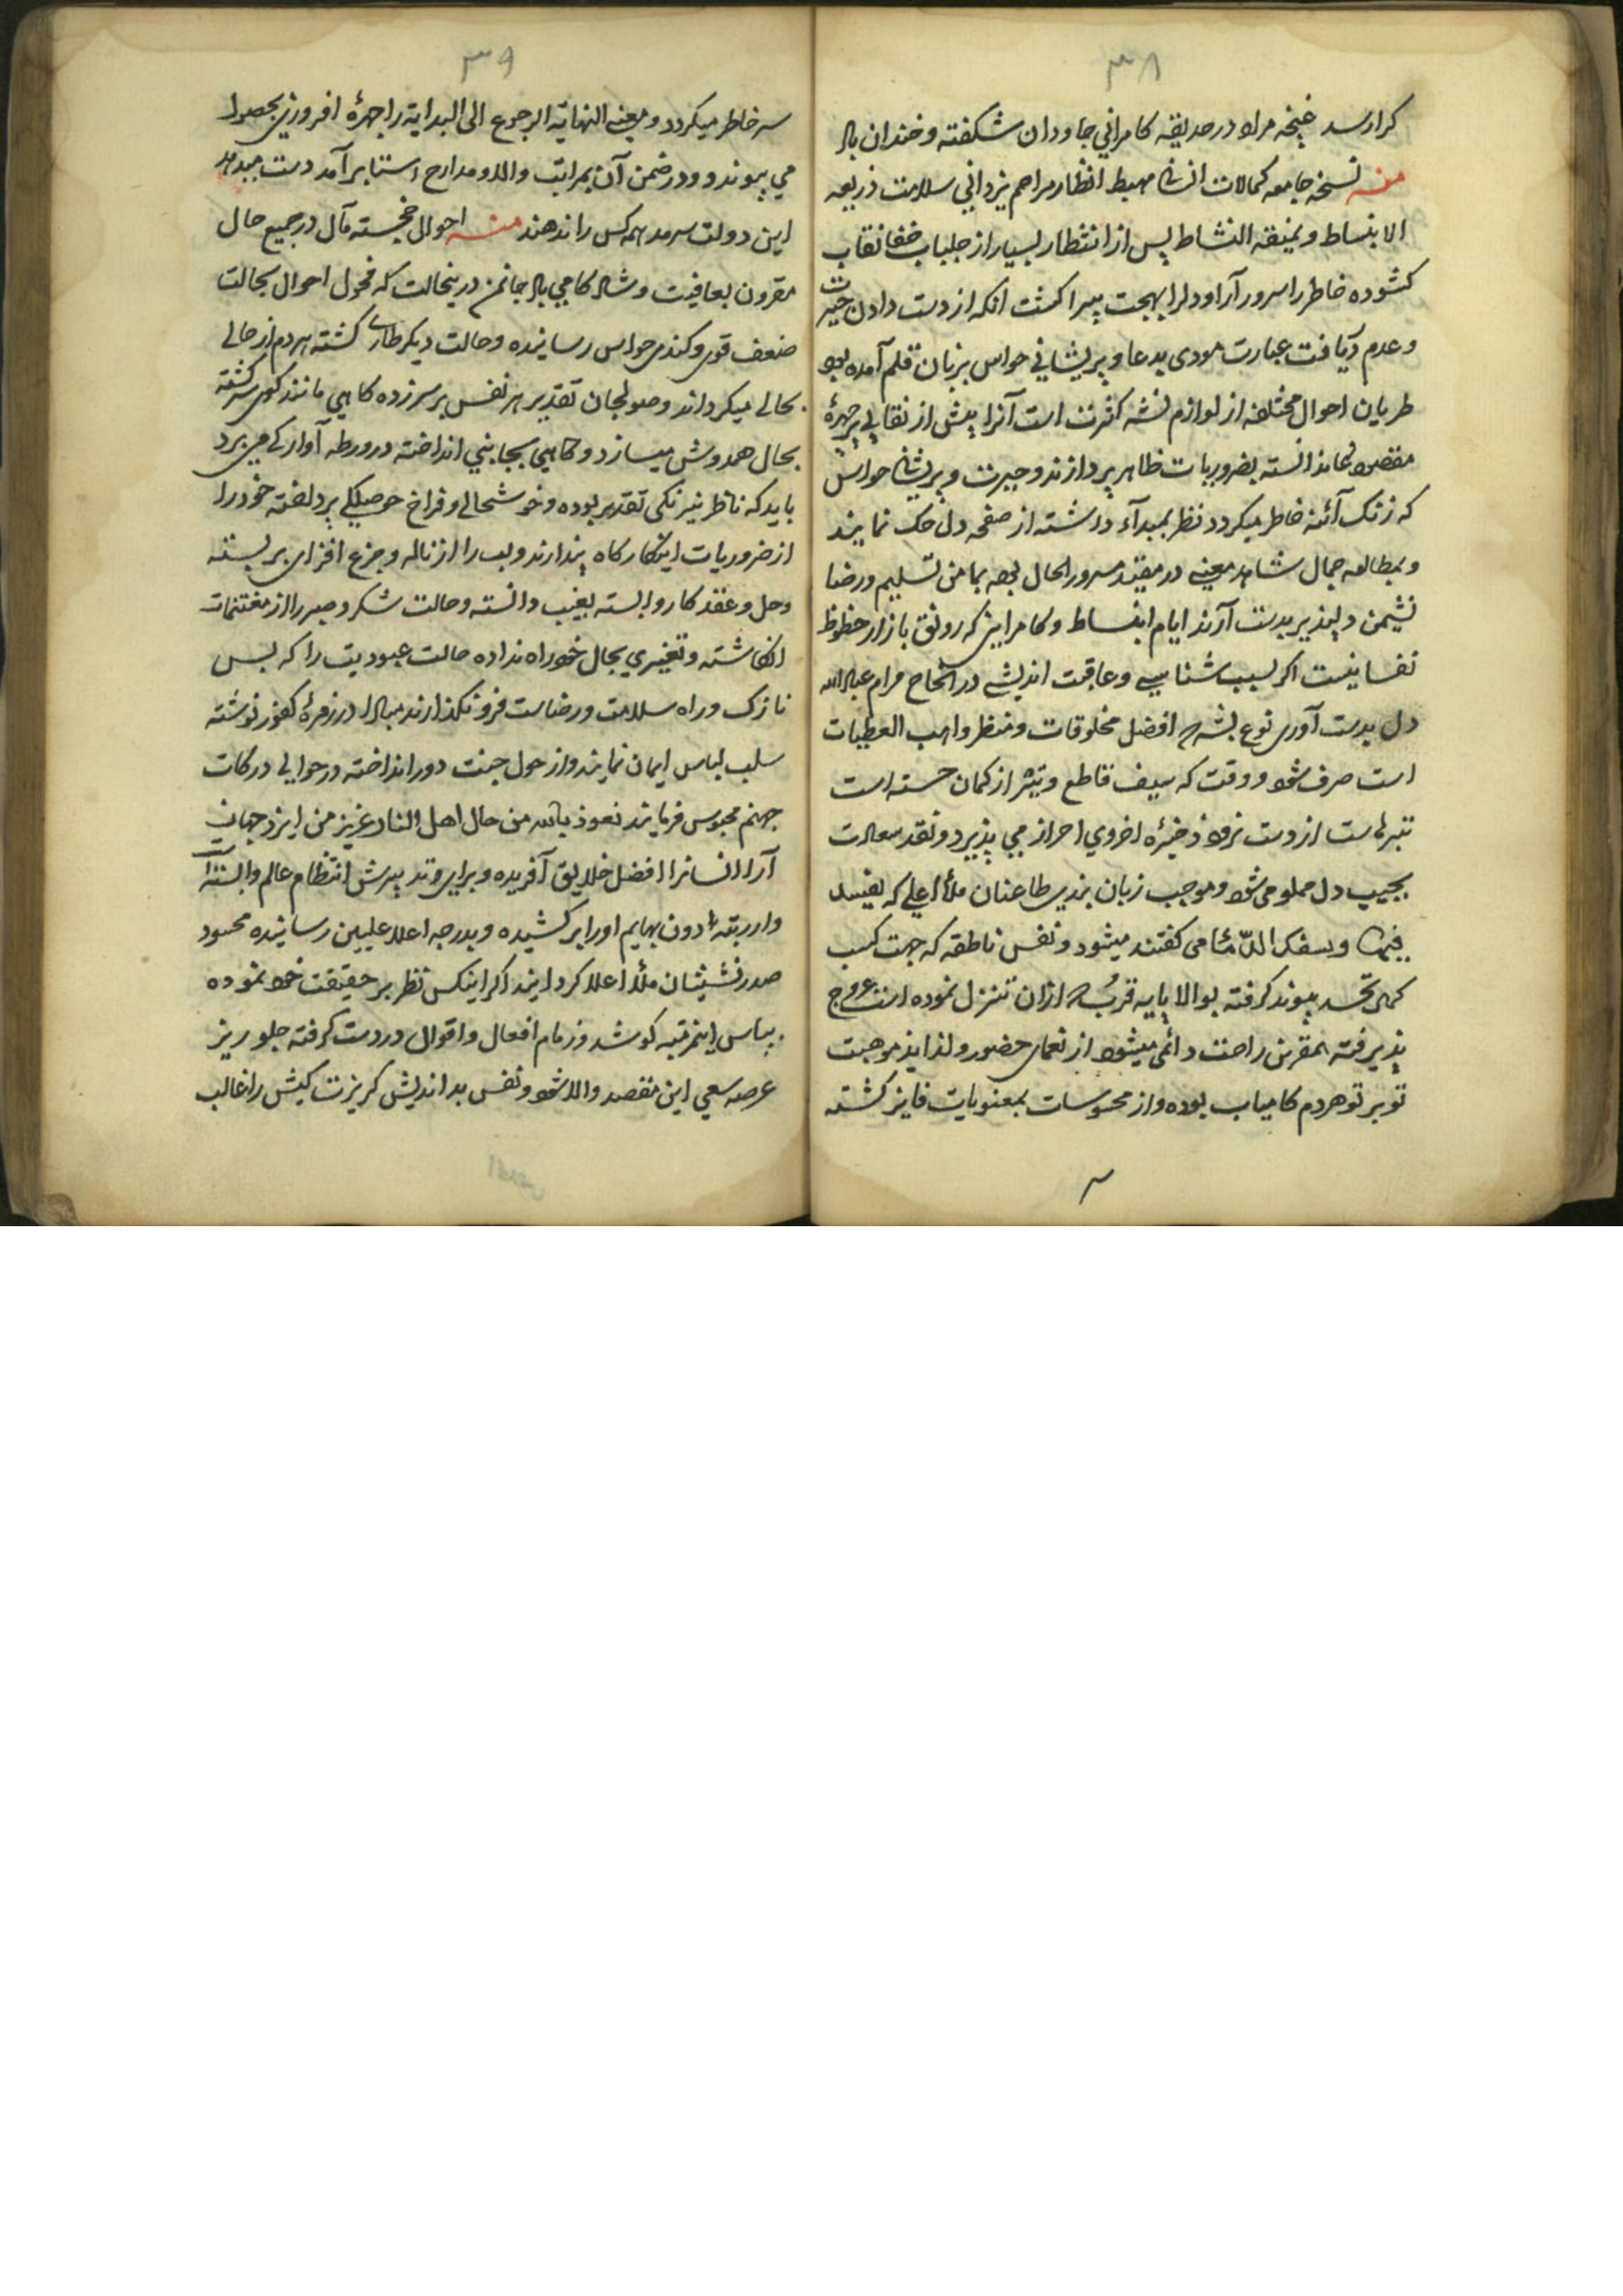 ۳۸
کرارسد غنچه مراد در حدیقه کامرانی جاودان شکفته و خندان باد
منه نسخه جامعه کمالات انسانی مهبط انظار مراحم یزدانی سلامت ذریعه
الانبساط و نمیقه النشاط پس از انتظار بسیار از جلباب خفا نقاب
کشوده خاطر را سرور آرا و دلرا بهجت پیرا کشت انکه از دست دادن حیرت
و عدم دریافت عبارت مودی بدعا و پریشانی حواس بزبان قلم آمده بود
طریان احوال مختلفه از لوازم نشه کثرت است آنرا پیش از نقابی بر چهرهٔ
مقصود نماند دانسته بضروریات ظاهر پردازند و حیرت و پریشانی حواس
که زنک آئنه خاطر میکردد نظر بمبدآء داشته از صفحه دل حک نمایند
و بمطالعه جمال شاهد معینی در مقیند مسرور الحال بوده بمامن تسلیم و رضا
نشیمن دلپذیر بدست آرند ایام انبساط و کامرایی که رونق بازار حظوظ
نفسانیست اکر بسبب شناسی و عاقبت اندیشی در انجاح مرام عباد الله
دل بدست آوری نوع بشری افضل مخلوقات و منظر واهب العطیات
است صرف شود و وقت که سیف قاطع و تیر از کمان جسته است
تبرهاست از دست نرود ذخیرٔه اخروی احراز می پذیرد و نقد سعادت
بجیب دل مملو می شود و موجب زبان بندی طاعنان ملأ اعلی که یفسد
فیها و یسفک الدّمآء می کفتند میشود و نفس ناطقه که جهت کسب
کمال تجسد پیوند کرفته بوالا پایه قرب که ازان تنزل نموده است عروج
پذیرفته بمقرین راحت دائمی میشود از نعمای حضور و لذایذ موهبت
تو بر تو هردم کامیاب بوده و از محسوسات بمعنویات فایز کشته
۳۹
سر خاطر میکردد و معنی النهایة الرجوع الی البدایة را چهرهٔ افروزی بحصول
می پیوندد و در ضمن آن بمراتب والا و مدارج اسنا برآمد دست میدهد
این دولت سرمد همه کس را ندهند منه احوال خجسته مآل در جمیع حال
مقرون بعافیت و شاد کامی باد جانمن درینحالت که محول احوال بحالت
ضعف قوی و کندی حواس رسانیده و حالت دیکر طاری کشته هردم از حالی
بحالی میکرداند و صولجان تقدیر هر نفس بر سر زده کاهی مانند کوی سرکشته
بحال همدوش میسازد و کاهی بجانبی انداخته در ورطه آوارکی می برد
باید که ناظر نیرنکی تقدیر بوده و خوشحالی و فراخ حوصلکی پرداخته خودرا
از ضروریات اینکارکاه پندارند و لب را از ناله و جزع افزای بربسته
و حل و عقد کار وابسته بغیب دانسته و حالت شکر و صبر را از مغتنمات
انکاشته و تغییری بحال خود راه نداده حالت عبودیت را که بس
نازک و راه سلامت و رضاست فرو نکذارند مبادا در زمرهٔ کفور نوشته
سلب لباس ایمان نمایند و از حول جنت دور انداخته در حوالی درکات
جهنم محبوس فرمایند نعوذ بالله من حال اهل النار عزیز من ایزد جهان
آرا انسانرا افضل خلایق آفریده و برای وتد پیرش انتظام عالم وابسته
و از رتبهٔ ادون بهایم اورا برکشیده و بدرجه اعلا علیین رسانیده محسود
صدرنشینان ملأ اعلا کردانید اکر اینکس نظر بر حقیقت خود نموده
بپاس اینمرتبه کوشد و زمام افعال و اقوال در دست کرفته جلو ریز
عرصه سعی این مقصد والا شود و نفس بداندیش کریزت کیش را غالب